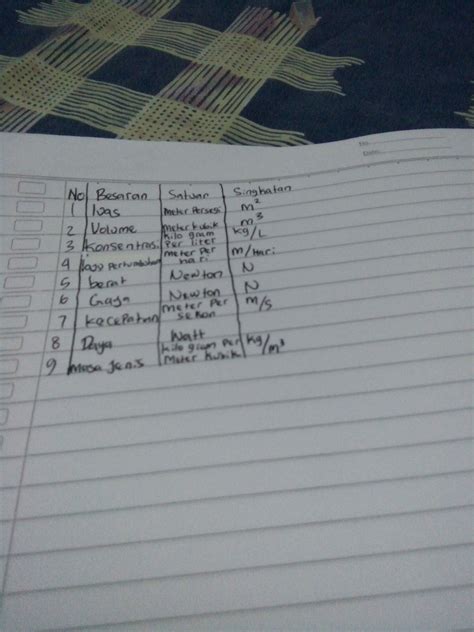 No Besaran Satuan Singkatan
1 luas Meter Persegi m²
2 Volume Meter kubik m³
3 Konsentrasi kilo gram Per liter kg/L
4 laju Pertumbuhan meter Per hari m/Hari
5 berat Newton N
6 Gaya Newton N
7 kecepatan meter Per sekon m/s
8 Daya Watt
9 Masa Jenis kilo gram Per Meter kubik kg/m³